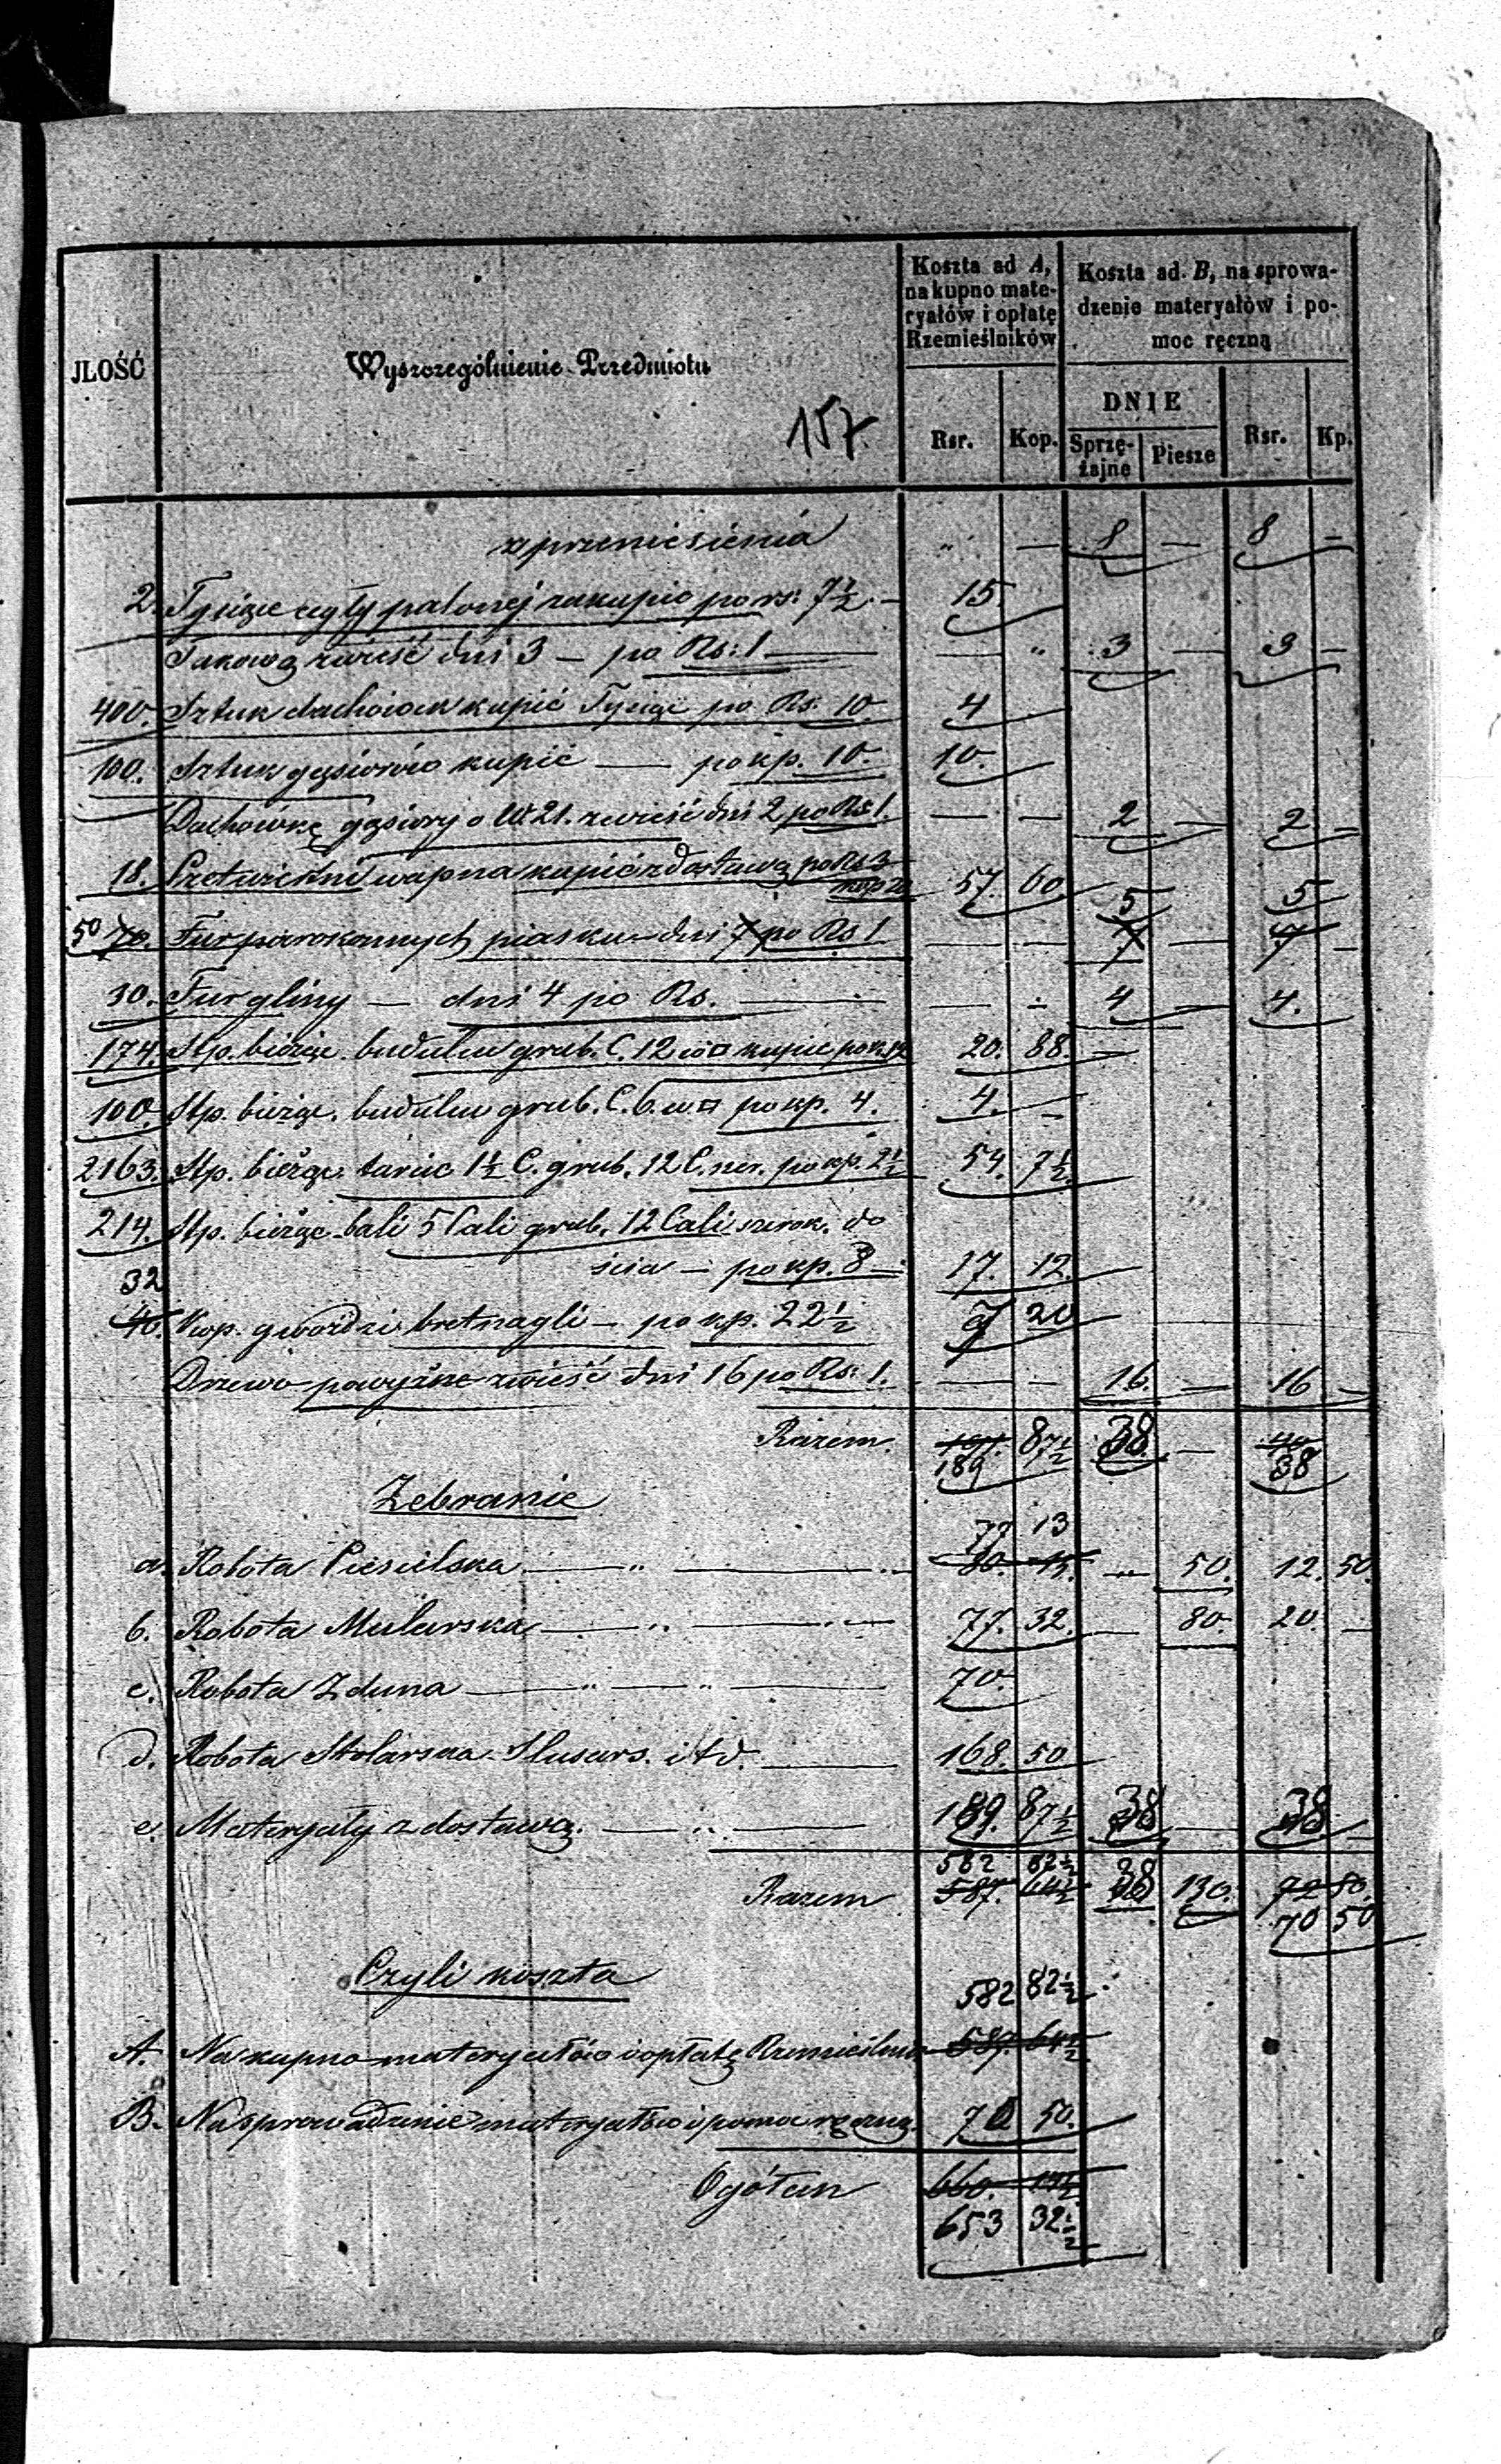 JLOŚĆ
Wyszczególnienie Przedmiotu
157.
Koszta ad A,
na kupno mate-
ryałów i opłatę
Rzemieślników
Koszta ad. B, na sprowa-
dzenie materyałów i po-
moc ręczną
DNIE
Rsr. Kop. Sprzę-
żajne Piesze Rsr. Kp.
z przeniesienia „ — 8 — 8 —
2. Tysiące cegły palonej zakupić po rs: 7½ — 15.
Takową zwieść dni 3 — po Rs: 1 — — „ 3 — 3 —
400. Sztuk dachówek kupić Tysiąc po Rs. 10. 4
100. Sztuk gąsiorów kupić — po kp. 10. 10.
Dachówkę gąsiory o W 21. zwieść dni 2 po Rs 1. — — 2 — 2 —
18. Ćwiertni wapna kupić z dostawą po Rs 3
kop 20 57. 60.
50 70. Fur parokonnych piasku — dni 7 po Rs 1 — — 5 7 — 5 7 —
30. Fur gliny — dni 4 po Rs. — — — 4 — 4.
174. Stp. bieżąc. budulcu grub. C. 12 w □ kupić po k. 12 20. 88. —
100. Stp. bieżąc. budulcu grub. C. 6. w □ po kp. 4. 4. —
2163. Stp. bieżąc. tarcic 1½ C. grub. 12 C. szer. po kp. 2½ 54. 7½.
214. Stp. bieżąc. bali 5 Cali grub. 12 Cali szerok. do
ścia — po kp. 8 — 17. 12.
32
40. Kop. gwoździ bretnagli — po kp. 22½ 7 20
Drzewo powyższe zwieść dni 16 po Rs: 1. — — 16. — 16 —
Razem. 191. 87½ 38. — 40
189 38
Zebranie
77 13
a. Robota Ciesielska — „ — 80. 15. — 50. 12. 50.
b. Robota Mularska — „ — 77. 32. — 80. 20. —
c. Robota Zduna — „ — „ — 70.
d. Robota Stolarska Slusars. itd. — 168. 50
e. Materyały z dostawą. — „ — 189. 87½ 38 — 38 —
582 82½
Razem 587. 64½ 38 130. 72 50.
70 50
Czyli koszta
582 82½
A. Na kupno materyałów i opłatę Rzemieślnik 587. 64½
B. Na sprowadzenie materyałów i pomoc ręczną. 70 50.
Ogółem 660. 14½
653 32½